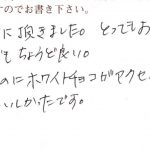 すのでお書き下さい。
に頂きました。とってもお
でもちょうど良い。
のにホワイトチョコがアクセ
いしかったです。